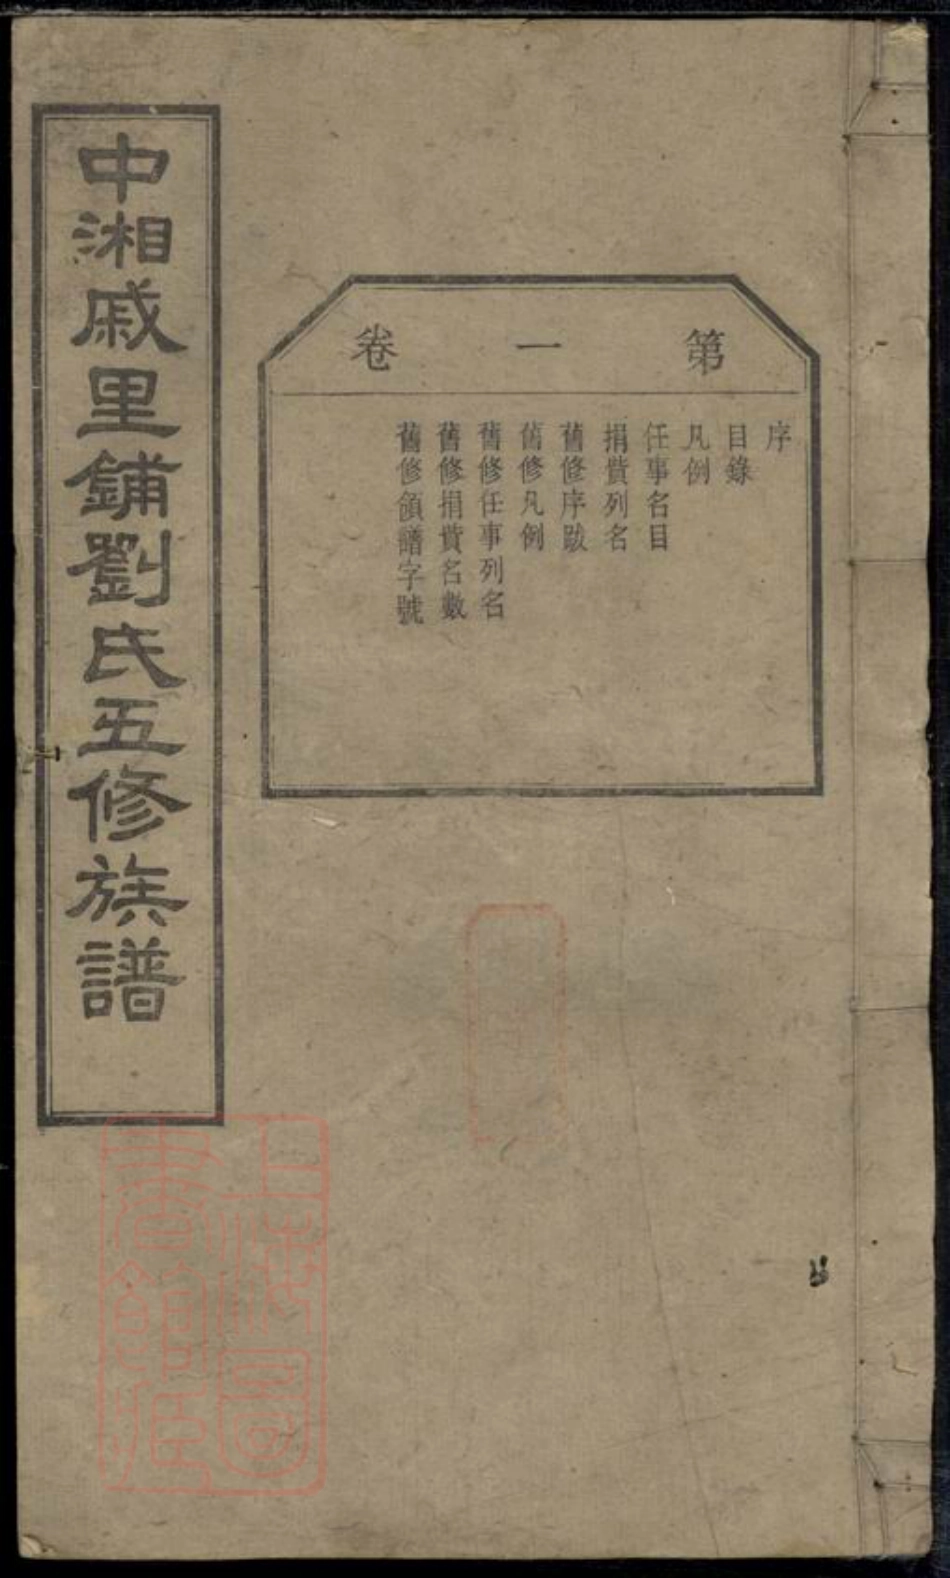 第一卷
序
目錄
凡例
任事名目
捐貲列名
舊修序跋
舊修凡例
舊修任事列名
舊修捐貲名數
舊修領譜字號
中湘戚里鋪劉氏五修族譜
上海圖
書館藏